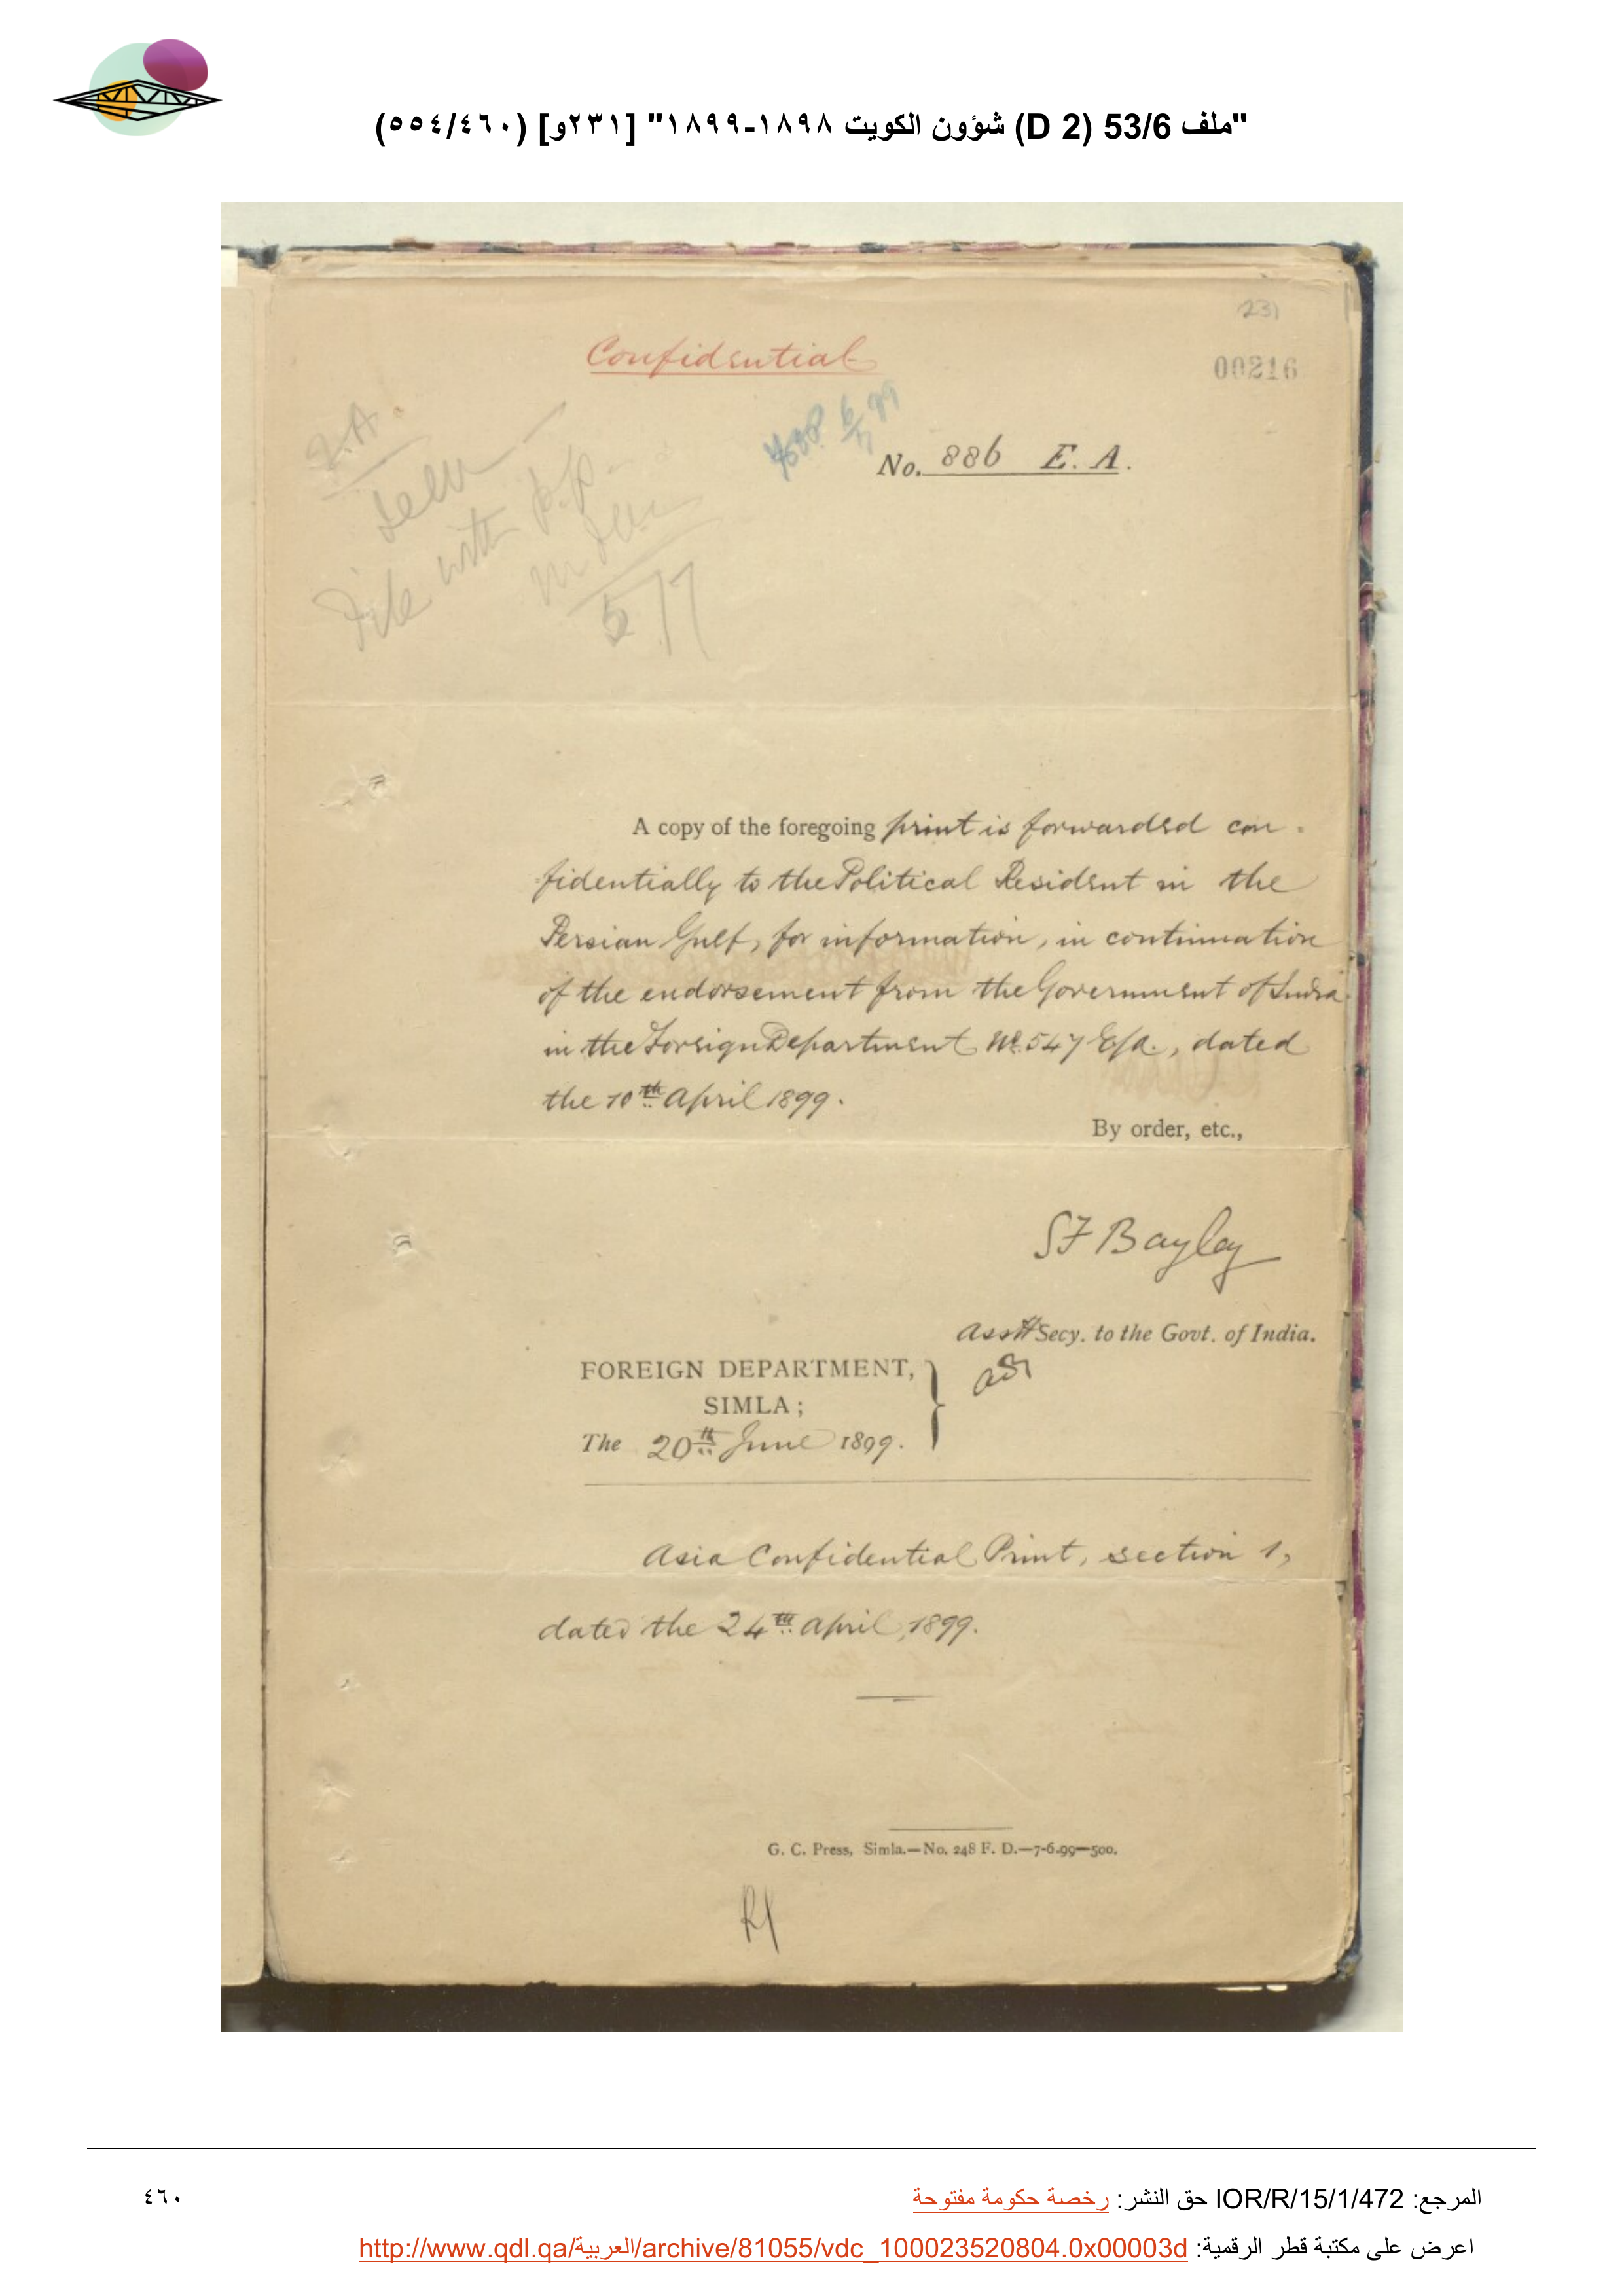 "ملف 53/6 (D 2) شؤون الكويت ١٨٩٨-١٨٩٩" [٢٣١و] (٥٥٤/٤٦٠)
231
Confidential
00216
No. 886 E. A.
File with p.p.
5/7
A copy of the foregoing print is forwarded con-
fidentially to the Political Resident in the
Persian Gulf, for information, in continuation
of the endorsement from the Government of India
in the Foreign Department No. 547 E/A., dated
the 10th April 1899.
By order, etc.,
S F Bayley
Asstt Secy. to the Govt. of India.
FOREIGN DEPARTMENT,
SIMLA;
The 20th June 1899.
Asia Confidential Print, section 1,
dated the 24th April, 1899.
G. C. Press, Simla.—No. 248 F. D.—7-6-99—500.
المرجع: IOR/R/15/1/472 حق النشر: رخصة حكومة مفتوحة
٤٦٠
اعرض على مكتبة قطر الرقمية: http://www.qdl.qa/العربية/archive/81055/vdc_100023520804.0x00003d